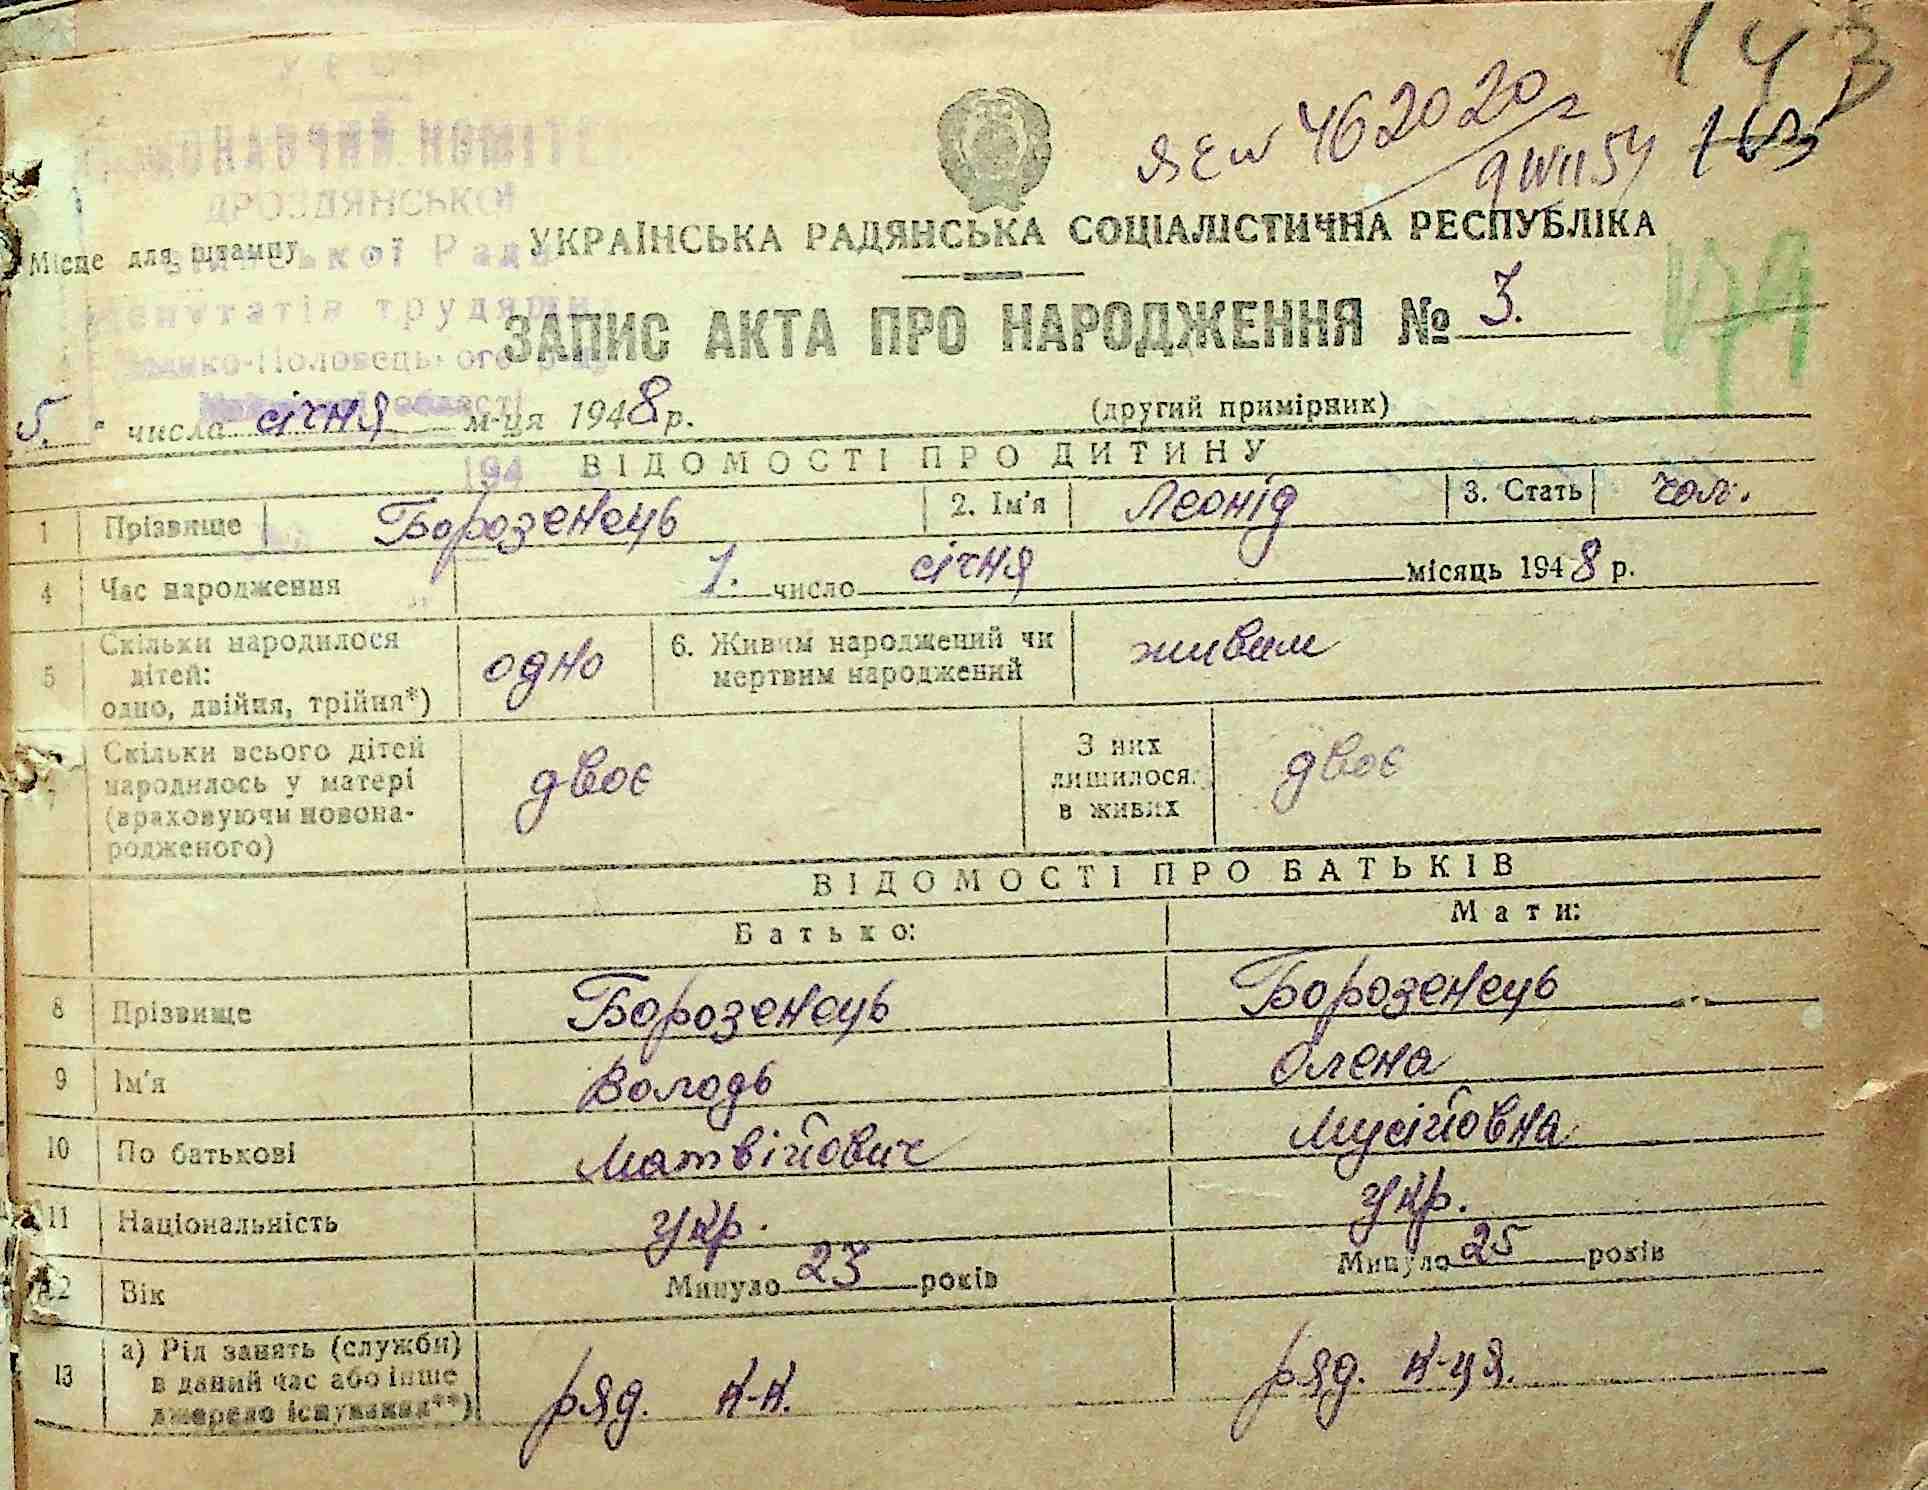 143
ЯЕШ 462020
163
УРСР
ВИКОНАВЧИЙ КОМІТЕТ
ДРОЗДЯНСЬКОЇ
сільської Ради
депутатів трудящих
УКРАЇНСЬКА РАДЯНСЬКА СОЦІАЛІСТИЧНА РЕСПУБЛІКА
Місце для штампу
ЗАПИС АКТА ПРО НАРОДЖЕННЯ № 3.
179
5. " числа січня м-ця 1948 р.
(другий примірник)
194
ВІДОМОСТІ ПРО ДИТИНУ
1 Прізвище Борозенець 2. Ім'я Леонід 3. Стать чол.
4 Час народження 1. число січня місяць 1948 р.
5 Скільки народилося дітей: одно, двійня, трійня*) одно 6. Живим народжений чи мертвим народжений живим
7 Скільки всього дітей народилось у матері (враховуючи новонародженого) двоє З них лишилося в живих двоє
ВІДОМОСТІ ПРО БАТЬКІВ
Батько: Мати:
8 Прізвище Борозенець Борозенець
9 Ім'я Володь Олена
10 По батькові Матвійович Мусійовна
11 Національність укр. укр.
12 Вік Минуло 23 років Минуло 25 років
13 а) Рід занять (служби) в даний час або інше джерело існування**) ряд. к-к. ряд. к-ця.